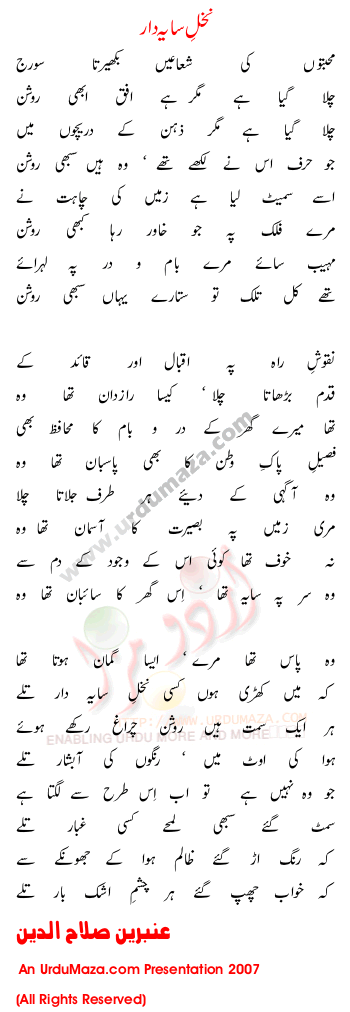 نخلِ سایہ دار
محبتوں کی شعاعیں بکھیرتا سورج
چلا گیا ہے مگر ہے افق ابھی روشن
چلا گیا ہے مگر ذہن کے دریچوں میں
جو حرف اس نے لکھے تھے ، وہ ہیں سبھی روشن
اسے سمیٹ لیا ہے زمیں کی چاہت نے
مرے فلک پہ جو خاور رہا کبھی روشن
مہیب سائے مرے بام و در پہ لہرائے
تھے کل تلک تو ستارے یہاں سبھی روشن
نقوشِ راہ پہ اقبال اور قائد کے
قدم بڑھاتا چلا ، کیسا رازداں تھا وہ
تھا میرے گھر کے در و بام کا محافظ بھی
فصیلِ پاکِ وطن کا بھی پاسبان تھا وہ
وہ آگہی کے دیئے ہر طرف جلاتا چلا
مری زمیں پہ بصیرت کا آسمان تھا وہ
نہ خوف تھا کوئی اس کے وجود کے دم سے
وہ سر پہ سایہ تھا ، اِس گھر کا سائبان تھا وہ
وہ پاس تھا مرے ، ایسا گمان ہوتا تھا
کہ میں کھڑی ہوں کسی نخلِ سایہ دار تلے
ہر ایک سمت ہیں روشن چراغ رکھے ہوئے
ہوا کی اوٹ میں ، رنگوں کی آبشار تلے
جو وہ نہیں ہے تو اب اِس طرح سے لگتا ہے
سمٹ گئے سبھی لمحے کسی غبار تلے
کہ رنگ اڑ گئے ظالم ہوا کے جھونکے سے
کہ خواب چھپ گئے ہر چشمِ اشک بار تلے
عنبرین صلاح الدین
An UrduMaza.com Presentation 2007
(All Rights Reserved)
www.urdumaza.com
اردو مزا
HTTP://WWW.URDUMAZA.COM
ENABLING URDU MORE AND MORE